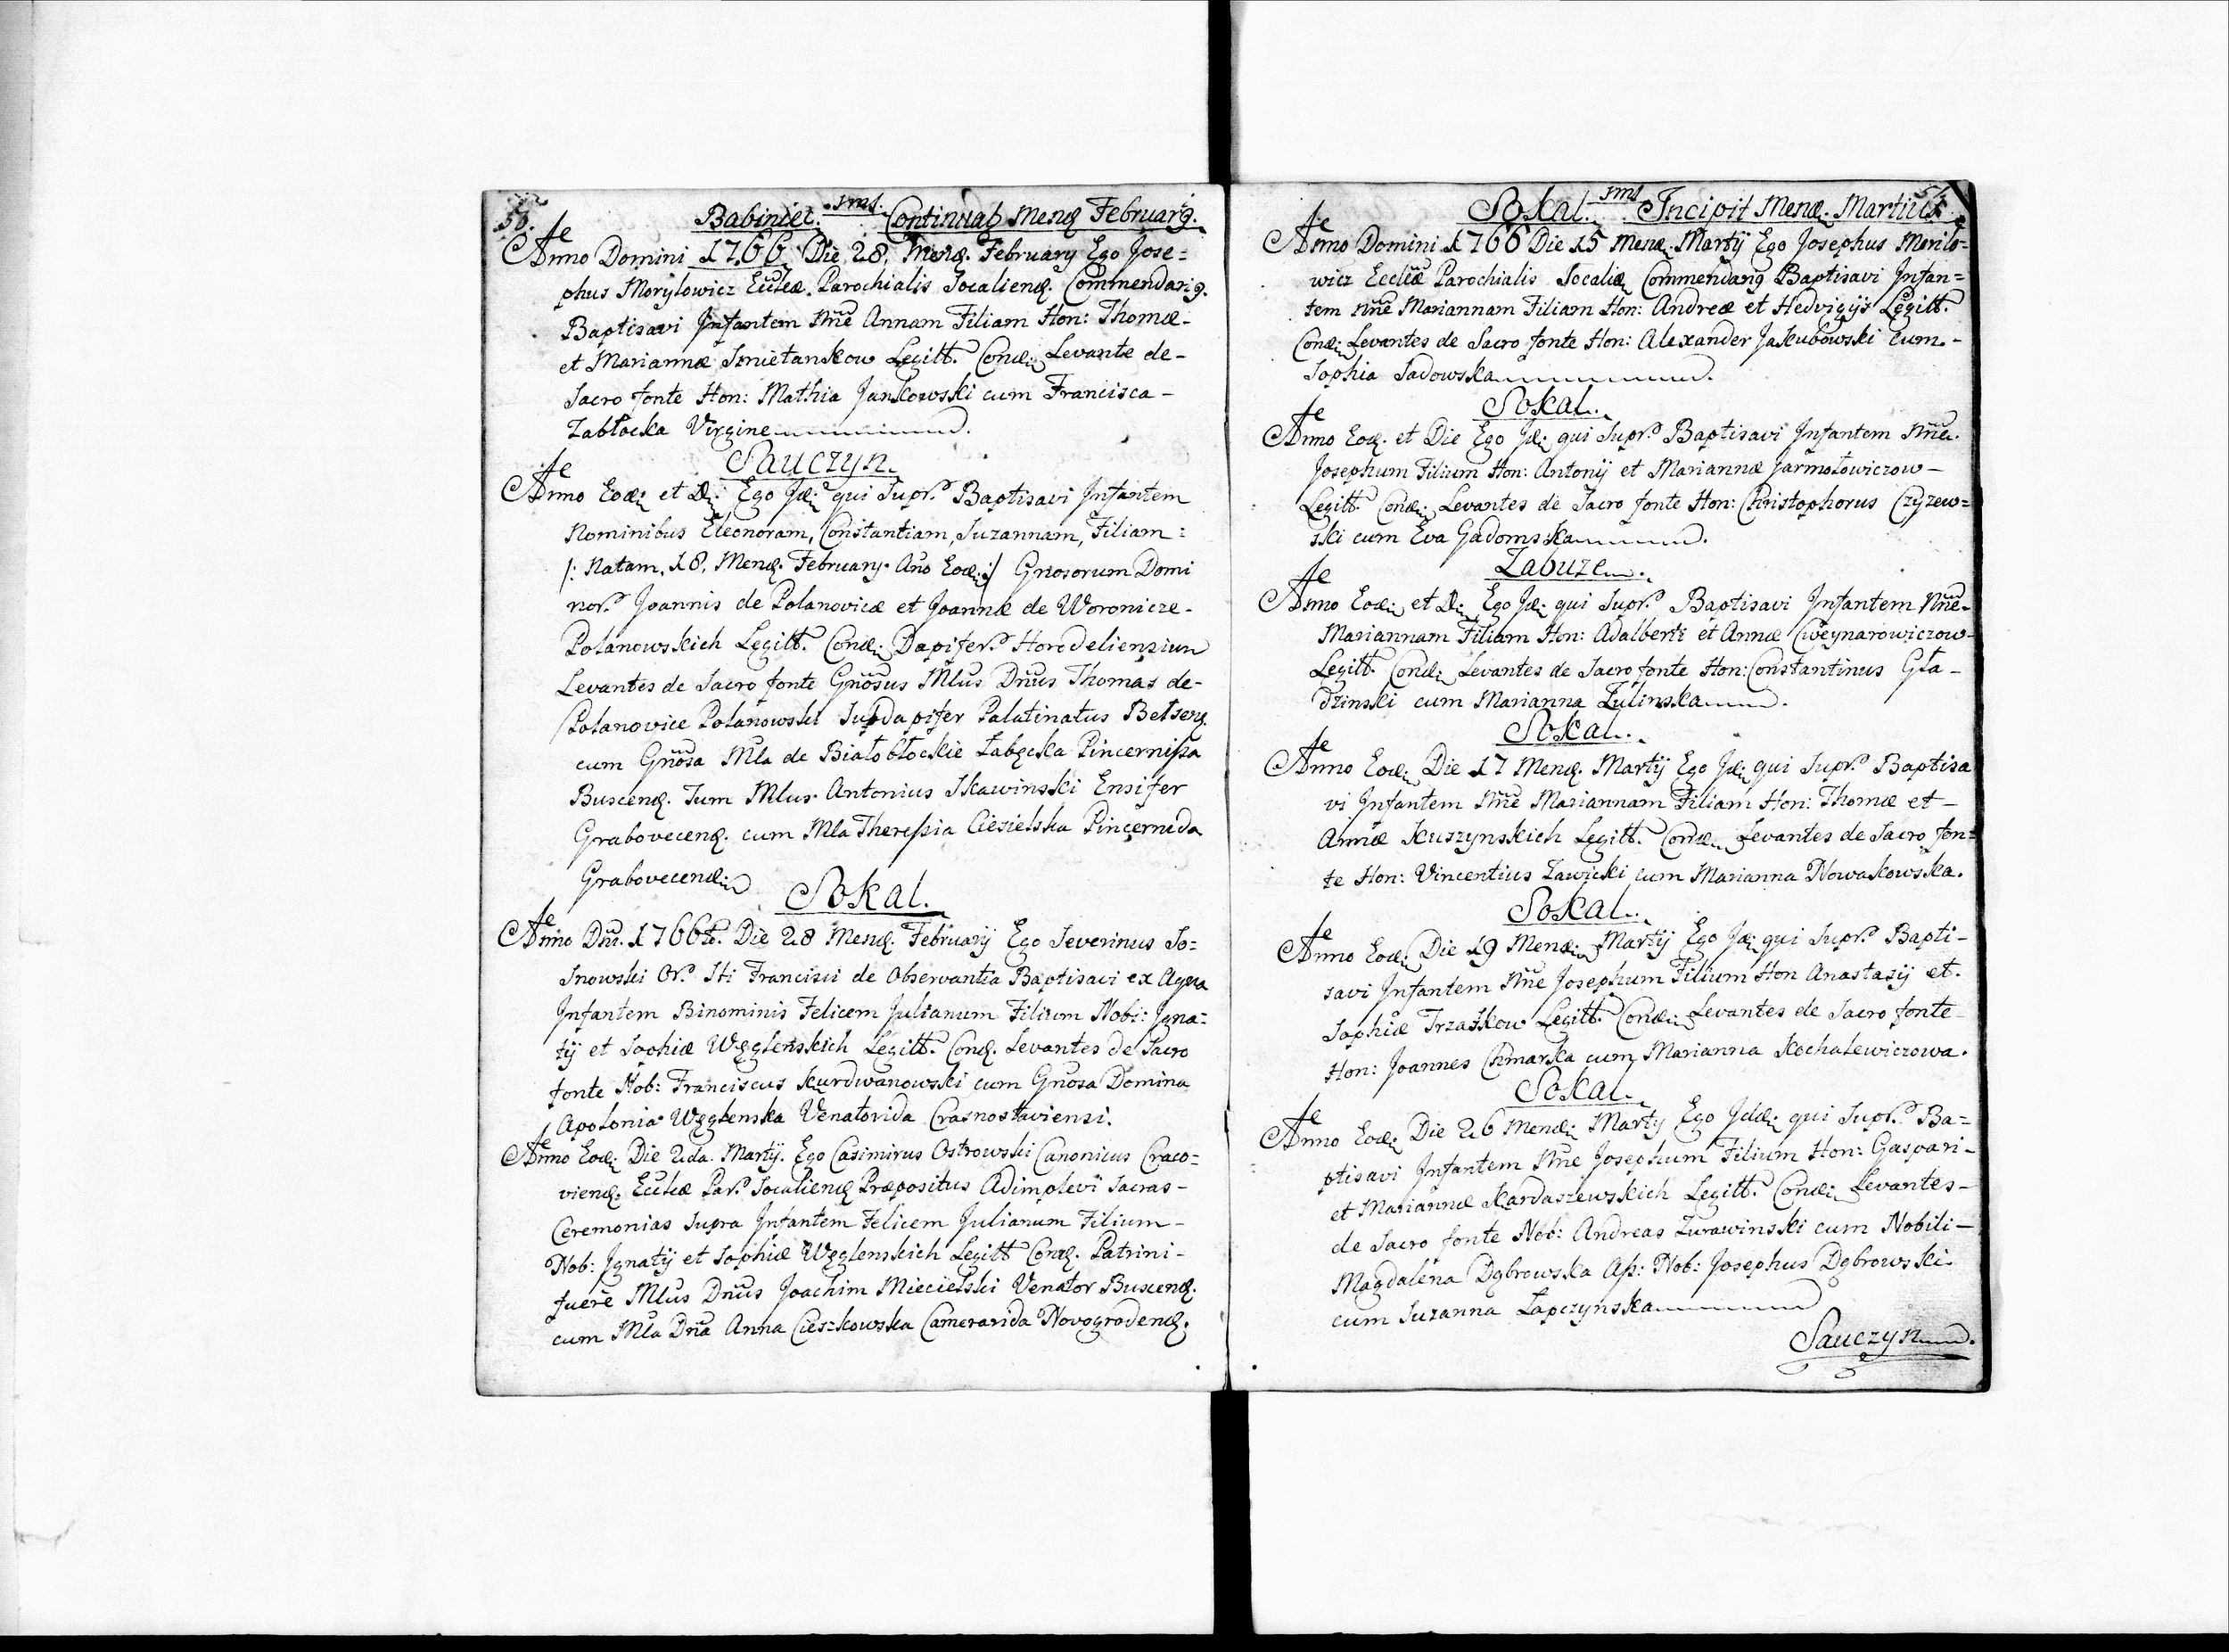 50.
Babiniec. 1mS. Continuat Mensq Februarig.
Anno Domini 1766. Die 28. Mensq. February Ego Jose=
phus Morylowicz Eccleæ. Parochialis Socaliensq. Commendarig.
Baptisavi Infantem Nñe Annam Filiam Hon: Thomæ-
et Mariannæ Smietankow Legitt. Cond: Levante de-
Sacro fonte Hon: Mathia Jankowski cum Francisca-
Zabłocka Virgine.
Sauczyn.
Anno Eod: et D: Ego Jd: qui Supr. Baptisavi Infantem
Nominibus Eleonoram, Constantiam, Suzannam, Filiam:
/: Natam. 18. Mensq. February. Año Eod: :/ Gnosorum Domi
nor. Joannis de Polanovicæ et Joannæ de Woronicze-
Polanowskich Legitt. Cond: Dapifer. Horodeliensium
Levantes de Sacro fonte Gnõsus Mlus Dnũs Thomas de-
Polanovice Polanowski Subdapifer Palatinatus Belsensq.
cum Gnõsa Mla de Białobłockie Łabęcka Pincernissa
Buscensq. Tum Mlus. Antonius Skawinski Ensifer
Grabovecensq. cum Mla Theressia Ciesielska Pincernida
Grabovecen
Sokal.
Anno Dñi. 1766to. Die 28 Mensq. Februarij Ego Severinus So=
snowski Or. Sti Francisci de Observantia Baptisavi ex Aqua
Infantem Binominis Felicem Julianum Filium Nob: Igna=
tij et Sophiæ Węglenskich Legitt. Cond. Levantes de Sacro
fonte Nob: Franciscus Kurdwanowski cum Gnosa Domina
Apolonia Węglenska Venatorida Crasnostaviensi.
Anno Eod: Die 2da. Martij. Ego Casimirus Ostrowski Canonicus Craco=
viensq. Eccleæ Par. Socaliensq Præpositus Adimplevi Sacras-
Ceremonias Supra Infantem Felicem Julianum Filium-
Nob: Ignatij et Sophiæ Węglenskich Legitt Cond. Patrini-
fuere Mlus Dnũs Joachim Miecielski Venator Buscensq.
cum Mla Dña Anna Cieszkowska Camerarida Novogrodensq.
Sokal. 1mS Incipit Mensq. Martius
Anno Domini 1766 Die 15 Mensq. Martij Ego Josephus Morilo=
wicz Eccleæ Parochialis Socaliæ Commendarig Baptisavi Infan=
tem Nñe Mariannam Filiam Hon: Andreæ et Hedvigijs Legitt.
Cond: Levantes de Sacro fonte Hon: Alexander Jakubowski cum-
Sophia Sadowska.
Sokal.
Anno Eod. et Die Ego Jd: qui Supr. Baptisavi Infantem Nñe.
Josephum Filium Hon: Antonij et Mariannæ Jarmołowiczow-
Legitt. Cond: Levantes de Sacro fonte Hon: Christophorus Czyzew=
ski cum Eva Gadomska.
Zabuze.
Anno Eod: et D: Ego Jd: qui Supr. Baptisavi Infantem Nñe-
Mariannam Filiam Hon: Adalberti et Annæ Cweynarowiczow-
Legitt. Cond: Levantes de Sacro fonte Hon: Constantinus Gła-
dzinski cum Marianna Zulinska.
Sokal.
Anno Eod: Die 17 Mensq. Martij Ego Jd: qui Supr. Baptisa
vi Infantem Nñe Mariannam Filiam Hon: Thomæ et-
Annæ Kuszynskich Legitt. Cond: Levantes de Sacro fon=
te Hon: Vincentius Zawicki cum Marianna Nowakowska.
Sokal.
Anno Eod: Die 19 Mens: Martij Ego Jd: qui Supr. Bapti-
savi Infantem Nñe Josephum Filium Hon Anastasij et.
Sophiæ Trzaskow Legitt. Cond: Levantes de Sacro fonte-
Hon: Joannes Chmarka cum Marianna Kochalewiczowa.
Sokal.
Anno Eod: Die 26 Mens: Martij Ego Jd: qui Supr. Ba=
ptisavi Infantem Nñe Josephum Filium Hon: Gaspari-
et Mariannæ Kardaszewskich Legitt. Cond: Levantes-
de Sacro fonte Nob: Andreas Zurawinski cum Nobili-
Magdalena Dąbrowska Ass: Nob: Josephus Dąbrowski-
cum Suzanna Łapczynska
Sauczyn.